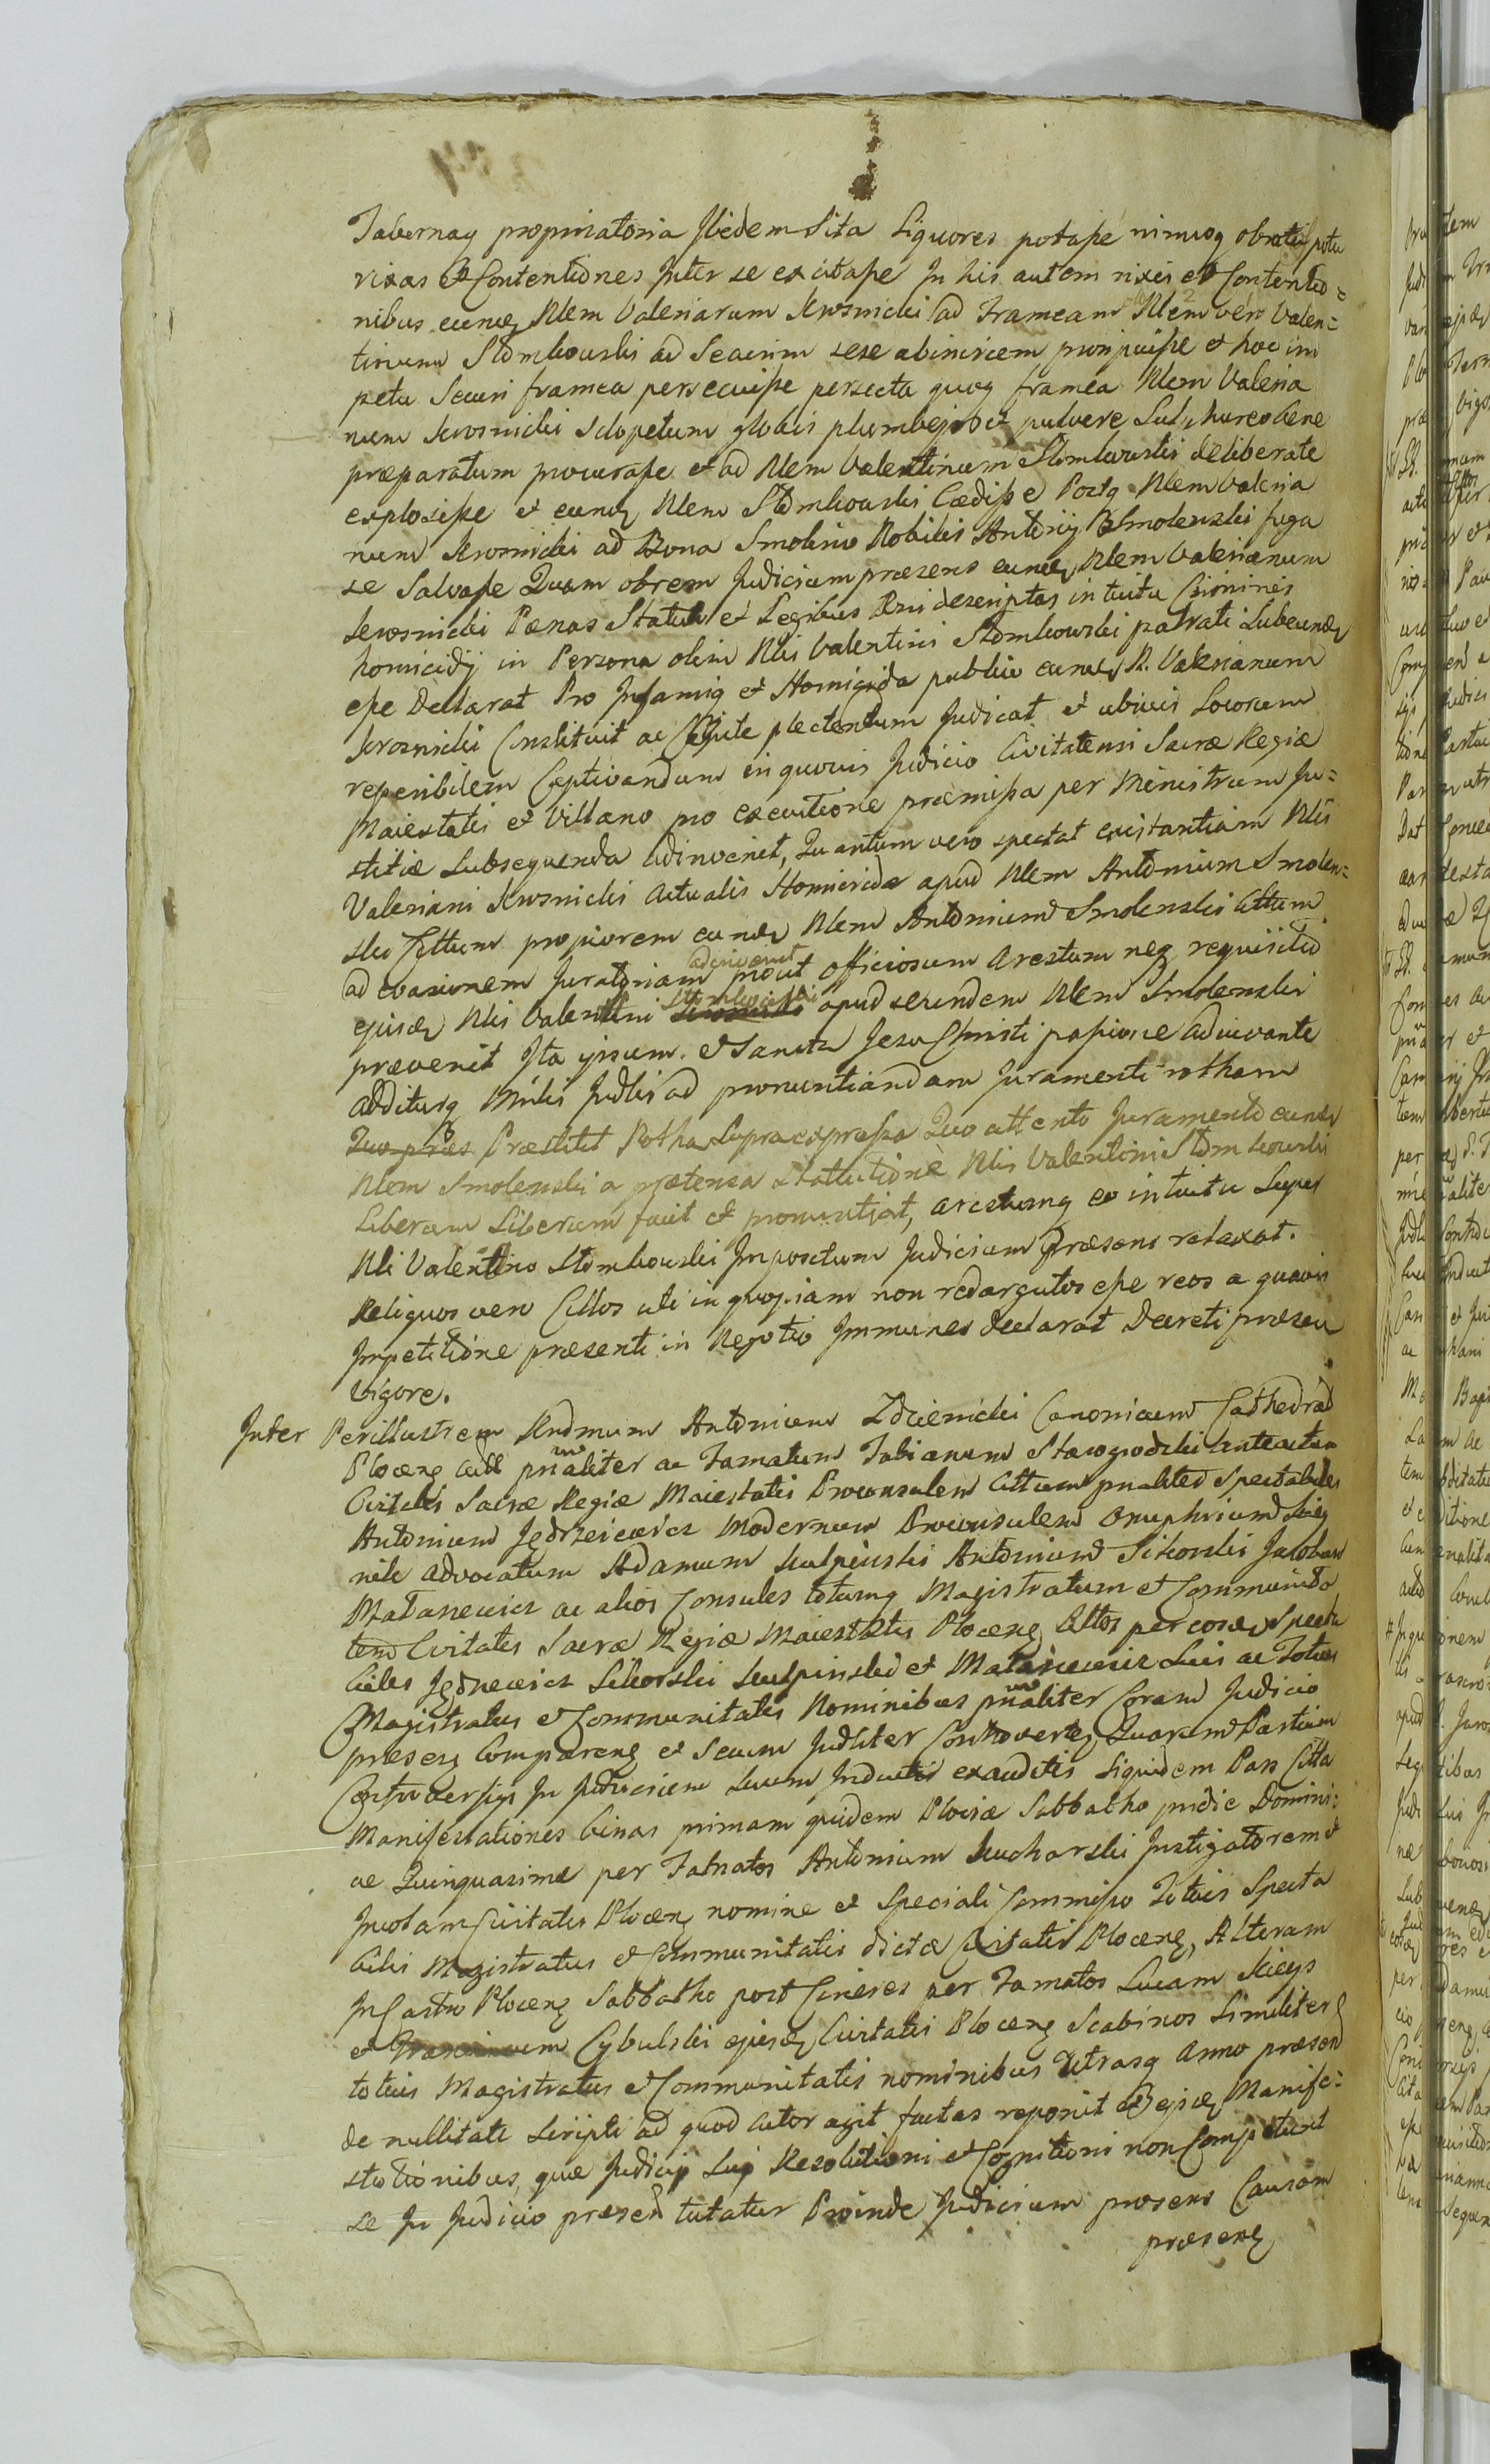 Tabernaq propinatoria Ibidem Sita Liquores potasse nimioq obruti potu
rixas et Contentiones Inter se excitasse In his autem rixis et Contentio=
nibus eundq Nlem Valerianum Krosnicki ad Frameam Nlem vero Valen=
tinum Stomkowski ad Securim sese abinvicem proripuisse et hoc im
petu Securi framea persecuisse persecta quoq framea Nlem Valeria
num Krosnicki sclopetum globis plumbejs et pulvere Sulphureo bene
præparatum procurasse et ad Nlem Valentinum Stomkowski deliberate
explosisse et eundq Nlem Stomkowski Cædisse Postq Nlem Valeria
num Krosnicki ad Bona Smolino Nobilis Antonij Smolenski fuga
se Salvasse Quam obrem Judicium præsens eundq Nlem Valerianum
Krosnicki Pænas Statuto et Legibus Rni descriptas intuitu Criminis
homicidij in Persona olim Nlis Valentini Stomkowski patrati Lubeundq
esse Declarat Pro Infamiq et Homicida publico eundq N. Valerianum
Krosnicki Constituit ac Capite plectendum Judicat et ubivis Locorum
reperibilem Captivandum in quovis Judicio Civitatensi Sacræ Regiæ
Maiestatis et Villano pro executione præmissa per Ministrum Ju=
stitiæ Subsequenda adinvenit, Quantum vero spectat existantiam Nlis
Valeriani Krosnicki actualis Homicidæ apud Nlem Antonium Smolen=
ski Cittum propiorem eundq Nlem Antonium Smolenski Cittum
ad evasionem Juratoriam adinvenit prout officiosum Arestum neq requisitio
ejusdq Nlis Valentini Stomkowski apud eundem Nlem Smolenski
prævenit Ita ipsum. et Sancta Jesu Christi passione adiuvante
additurq Mnlis Judlis ad pronuntiandam Juramenti rotham
Quo præs Præstitit Rotha Supraexpressa Quo attento Juramento eundq
Nlem Smolenski a prætensa Statutione Nlis Valentini Stomkowski
Liberum Liberum facit et pronuntiat, arestumq eo intuitu Super
Nli Valentino Stomkowski Impositum Judicium Præsens relaxat.
Reliquos vero Cittos uti in quopiam non redargutos esse reos a quavis
Impetitione præsenti in Negotio Immunes declarat Decreti præsen
vigore.
Inter Perillustrem Rndmum Antonium Zdzienicki Canonicum Cathedrad
Plocenq prnaliter ac Famatum Fabianum Starogrodzki anteactum
Civitatis Sacræ Regiæ Maiestatis Proconsulem Cittum prnaliter Spectabiles
Antonium Jędrzeiewicz Modernum Proconsulem Onuphrium
Advocatum Adamum Kulpinski Antonium Sikorski Jacobum
Matasiewicz ac alios Consules totumq Magistratum et Communita
tem Civitatis Sacræ Regiæ Maiestatis Plocenq Cittos per eosdq Specta
biles Jędrzeiewicz Sikorski Kulpinski et Matasiewicz Suis ac Totius
Magistratus et Communitatis Nominibus prnaliter Coram Judicio
præsenq Comparenq et Secum Judliter Controvertq Quarum Partium
Controversijs In Judicium suum Inductis exauditis Siquidem Pars Citta
Manifestationes binas primam quidem Plociæ Sabbatho pridie Domini:
cæ Quinquasimæ per Famatos Antonium Kucharski Instigatorem et
Incolam Civitatis Plocenq nomine et Speciali Commisso Totius Specta
bilis Magistratus et Communitatis dictæ Civitatis Plocenq, Alteram
In Castro Plocenq Sabbatho post Cineres per Famatos Lucam
et Cybulski ejusdq Civitatis Plocenq Scabinos Similiter
totius Magistratus et Communitatis nominibus Utrasq Anno præsend
de nullitate Scripti ad quod Actor agit factas reponit et ejsdq Manife:
stationibus, quæ Judicij Sui Resolutioni et Cognitioni non Competunt
se In Judicio præsend tutatur Proinde Judicium præsens Causam
præsenq